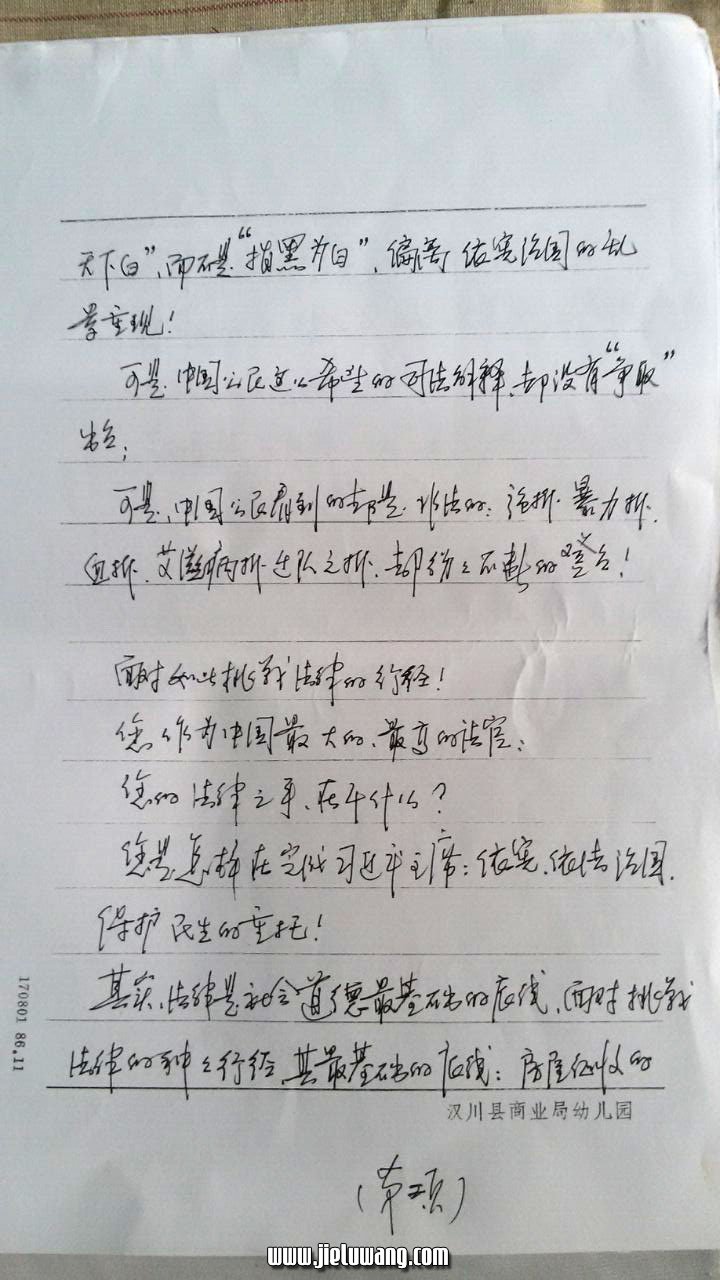 天下白”,而不是“指黑为白”,偏离依宪治国的乱
景重现!
可是,中国公民这么希望的司法解释,却没有“争取”
出台;
可是,中国公民看到的却是,非法的:强拆、暴力拆、
血拆、艾滋病拆迁队之拆,却纷纷不断的登台!
面对如此挑战法律的行径!
您作为中国最大的、最高的法官;
您的法律之手,在干什么?
您是怎样在完成习近平主席:依宪、依法治国,
保护民生的重托!
其实,法律是社会道德最基础的底线,面对挑战
法律的种种行径,其最基础的底线:房屋征收的
汉川县商业局幼儿园
170801 86.11
www.jieluwang.com